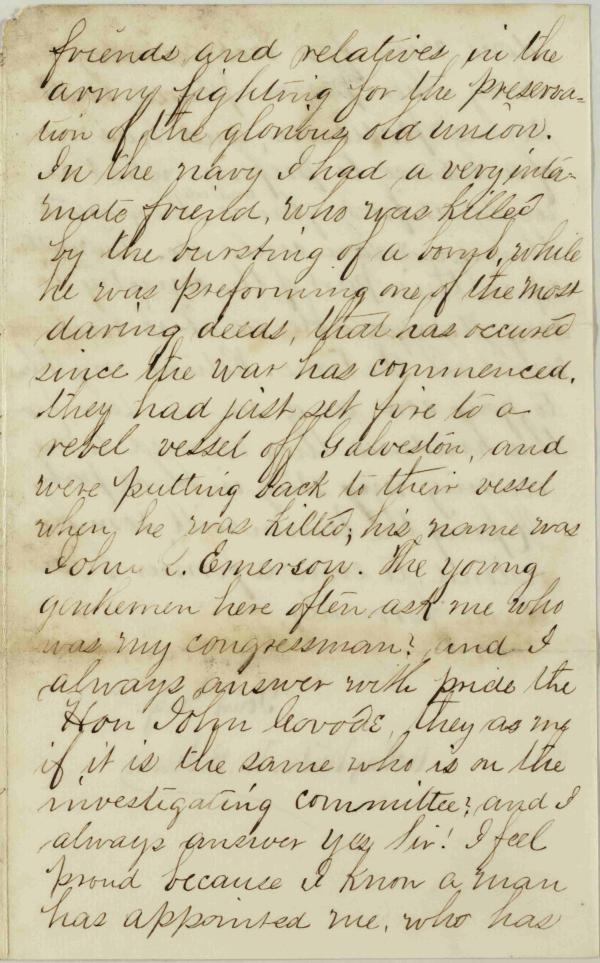 friends and relatives in the
army fighting for the preserva=
tion of the glorious old union.
In the navy I had a very inta-
mate friend, who was killed
by the bursting of a bomb, while
he was preforming one of the most
daring deeds, that has occured
since the war has commenced.
they had just set fire to a
rebel vessel off Galveston, and
were putting back to their vessel
when he was killed; his name was
John L. Emerson. The young
gentlemen here often ask me who
was my congressman? and I
always answer with pride the
Hon John Covode, they as me
if it is the same who is on the
investigating committee? and I
always answer yes Sir! I feel
proud because I know a man
has appointed me, who has